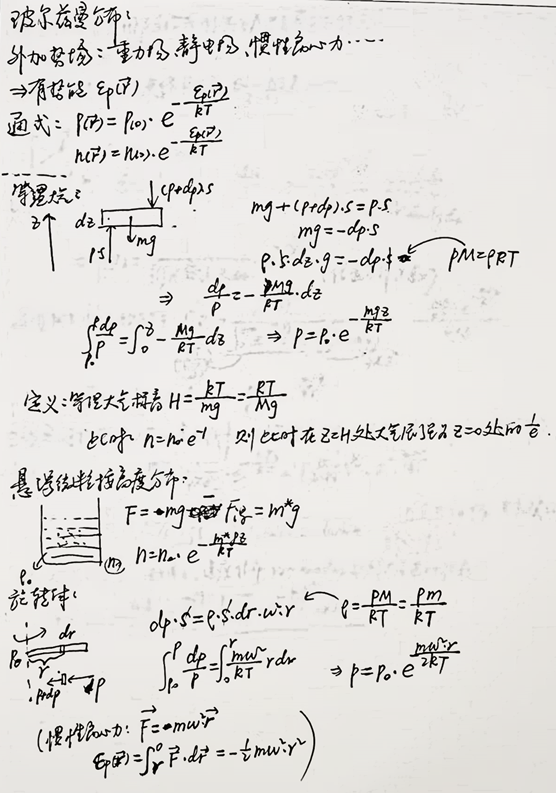 玻尔兹曼分布:
外加势场: 重力场,静电场,惯性离心力……
⇒有势能 εp(r⃗)
通式: P(r⃗) = P(0)· e^{-εp(r⃗)/kT}
n(r⃗) = n(0)· e^{-εp(r⃗)/kT}
等温大气:
z dz (P+dp)S PS mg
mg+(P+dp)·S = P·S
mg = -dp·S
ρ·S·dz·g = -dp·S ← PM=ρRT
⇒ dp/P = -Mg/RT·dz
∫_{P0}^{P} dp/P = ∫_0^z -Mg/RT dz ⇒ P = P0·e^{-mgz/kT}
定义: 等温大气标高 H = kT/mg = RT/Mg
此时 n=n0·e^{-1} 则此时在z=H处大气密度为z=0处的1/e.
悬浮微粒按高度分布:
F = mg - F浮 = m*g
n = n0· e^{-m*gz/kT}
旋转体:
P0 dr r P+dp P
dp·S = ρ·S·dr·ω²·r ← ρ = PM/RT = Pm/kT
∫_{P0}^{P} dp/P = ∫_0^r mω²/kT rdr ⇒ P = P0·e^{mω²r/2kT}
(惯性离心力: F⃗ = mω²r⃗
εp(r⃗) = ∫_r^0 F⃗·dr⃗ = -½mω²r²)